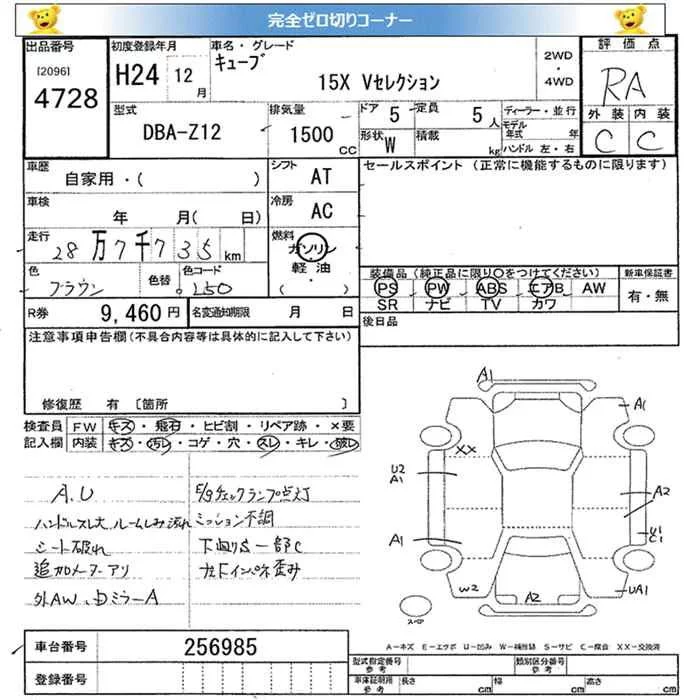 完全ゼロ切りコーナー
出品番号
[2096]
4728
初度登録年月
H24 12
月
車名・グレード
キューブ
15X Vセレクション
2WD
・
4WD
評価点
RA
外装 内装
C C
型式
DBA-Z12
排気量
1500
CC
ドア 5
定員 5
人
形状 W
積載
kg
ディーラー・並行
モデル
年式 年
ハンドル 左・右
車歴
自家用・( )
シフト
AT
セールスポイント (正常に機能するものに限ります)
車検
年 月( 日)
冷房
AC
走行
28万7千735km
燃料
ガソリン
・
軽油
( )
色
ブラウン
色替
色コード
L50
装備品 (純正品に限り○をつけてください)
新車保証書
PS PW ABS エアB AW
SR ナビ TV カワ
有・無
R券 9,460円
名変通知期限 月 日
後日品
注意事項申告欄(不具合内容等は具体的に記入して下さい)
修復歴 有 〔箇所 〕
検査員
記入欄
FW キズ・飛石・ヒビ割・リペア跡・×要
内装 キズ・汚レ・コゲ・穴・スレ・キレ・破レ
A.U
E/gチェックランプ点灯
ハンドルスレ大 ルームしみ汚れ
ミッション不調
シート破れ
下廻りS一部C
追加メーターアリ
左Fインパネ歪み
外AW、
ミラーA
A1
A1
XX
U2
A1
A2
A1
U1
C1
W2
A2
UA1
スペア
A−キズ E−エクボ U−凹み W−補修跡 S−サビ C−腐食 XX−交換済
車台番号
256985
登録番号
型式指定番号
参考
類別区分番号
参考
車庫証明用
参考
長さ cm
幅 cm
高さ cm